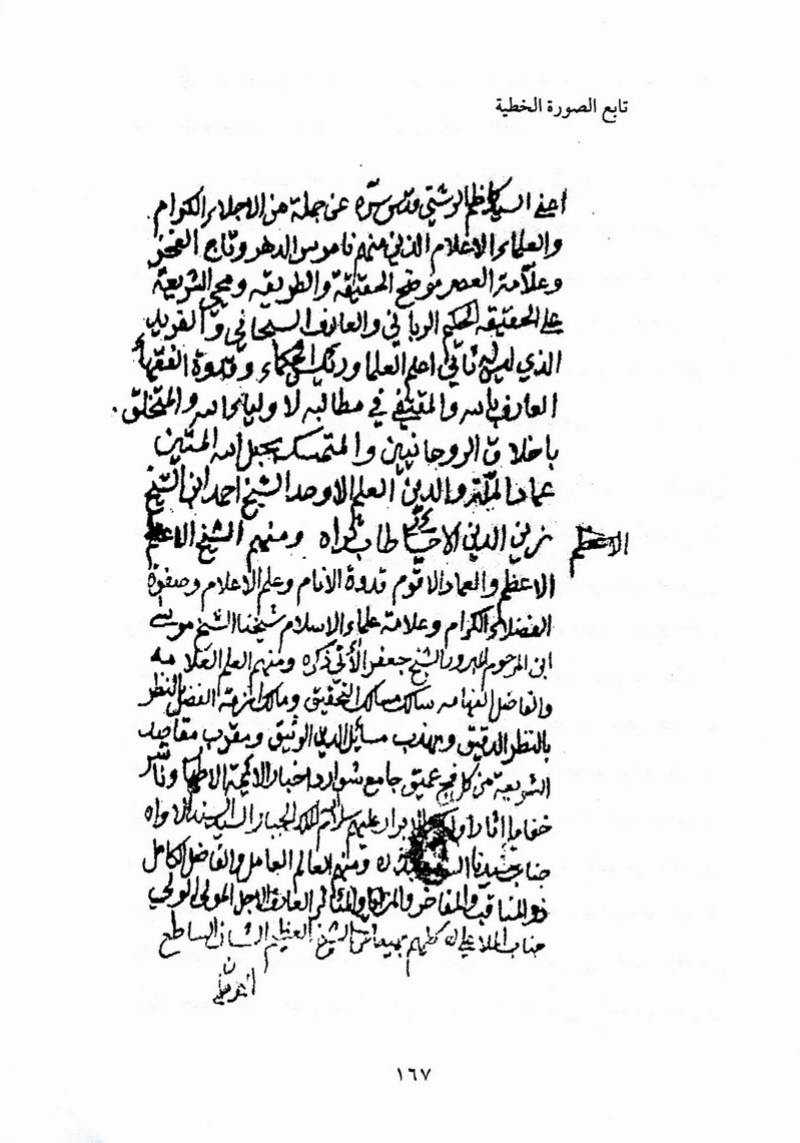 تابع الصورة الخطية
اعني السيد كاظم الرشتي قدس سره عن جملة من الاجلاء الكرام
والعلماء الاعلام الذين منهم ناموس الدهر وتاج الفخر
وعلامة العصر موضح الحقيقة والطريقه ومحي الشريعة
على الحقيقه الحكيم الرباني والعارف السبحاني
الذي ليس له ثاني اعلم العلماء و الحكماء وقدوة الفقهاء
العارف بالله والمقتفي في مطالبه لاولياء الله والمتخلق
باخلاق الروحانيين والمتمسك بحبل الله المتين
عماد الملة والدين العلم الاوحد الشيخ احمد ابن الشيخ
زين الدين الاحسائي طاب ثراه ومنهم الشيخ الاعظم
الاعظم
الاعظم والعماد الاقوم قدوة الانام وعلم الاعلام وصفوة
الفضلاء الكرام وعلامة علماء الاسلام شيخنا الشيخ موسى
ابن المرحوم المبرور الشيخ جعفر الآتي ذكره ومنهم العلم العلامه
والفاضل الفهامه سالك مسالك التحقيق ومالك ازمة الفضل
بالنظر الدقيق ومهذب مسائل الدين الوثيق ومقرب مقاصد
الشريعة من كل فج عميق جامع شوارد اخبار الائمة الاطهار وناشر
خفايا اثار الابرار عليهم سلام الملك الجبار السيد السند الاواه
جناب سيدنا السيد ومنهم العالم العامل والفاضل الكامل
ذو المناقب والمفاخر والمزايا والمآثر العارف الاجل المولى الولي
جناب الملا علي كلهم جميعا عن الشيخ العظيم الشان الساطع
١٦٧